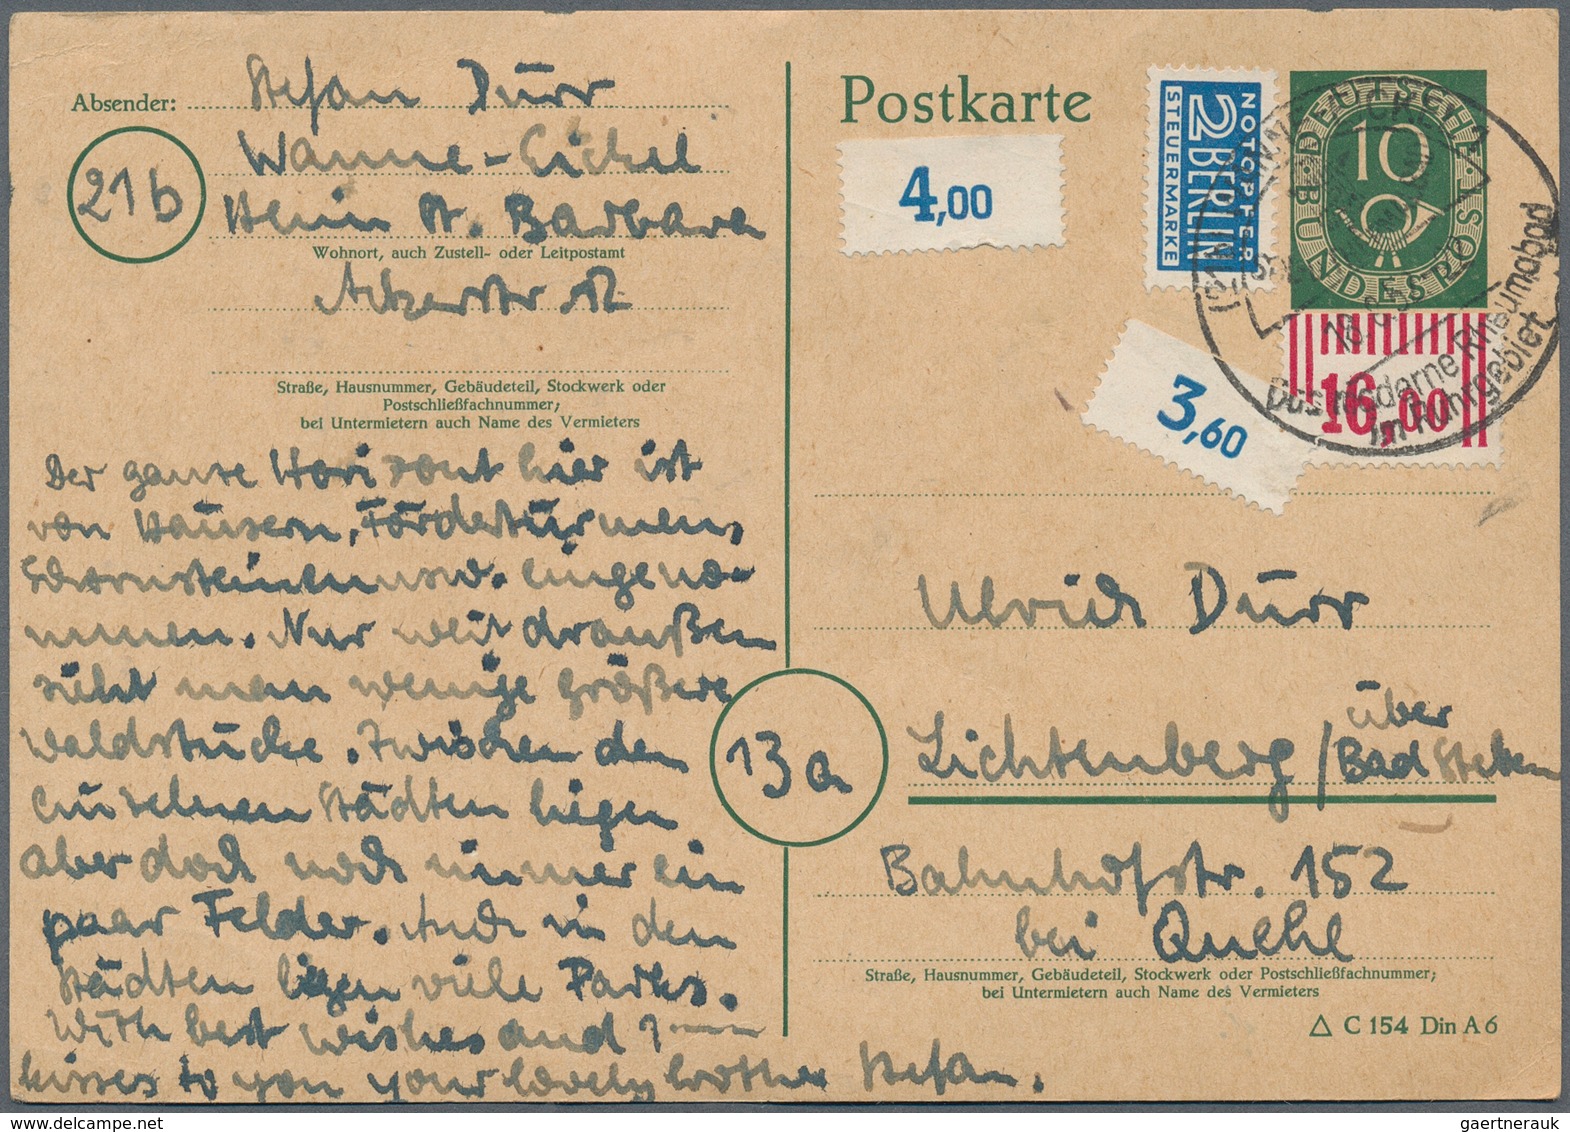 Absender: Stefan Dürr
Wanne-Eickel
21b
Heim St. Barbara
Wohnort, auch Zustell- oder Leitpostamt
Straße, Hausnummer, Gebäudeteil, Stockwerk oder
Postschließfachnummer;
bei Untermietern auch Name des Vermieters
Der ganze Horizont hier ist
von Häusern, Fördertürmen,
Schornsteinen usw. eingeno-
mmen. Nur weit draußen
sieht man wenige größere
Waldstücke. Zwischen den
einzelnen Städten liegen
aber doch noch immer ein
paar Felder. Auch in den
Städten liegen viele Parks.
With best wishes and 7
kisses to you your lovely brother Stefan.
Postkarte
4,00
NOTOPFER
2 BERLIN
STEUERMARKE
DEUTSCHE
10
BUNDESPOST
3,60
16,00
WANNE-EICKEL
Das moderne Rheumabad
im Ruhrgebiet
Ulrich Dürr
13a
Lichtenberg / über
Bad Steben
Bahnhofstr. 152
bei Quehl
Straße, Hausnummer, Gebäudeteil, Stockwerk oder Postschließfachnummer;
bei Untermietern auch Name des Vermieters
△ C 154 Din A 6
gaertnerauk